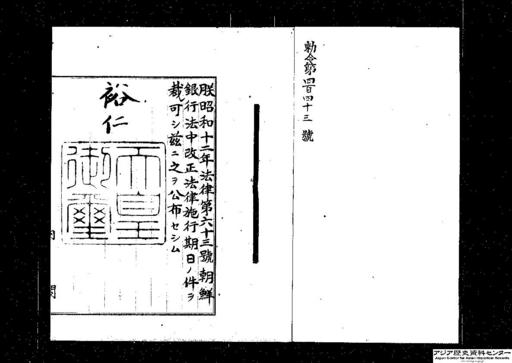 勅令第四百四十三號
朕昭和十二年法律第六十三號朝鮮
銀行法中改正法律施行期日ノ件ヲ
裁可シ茲ニ之ヲ公布セシム
裕仁
天皇
御璽
内閣
アジア歴史資料センター
Japan Center for Asian Historical Records